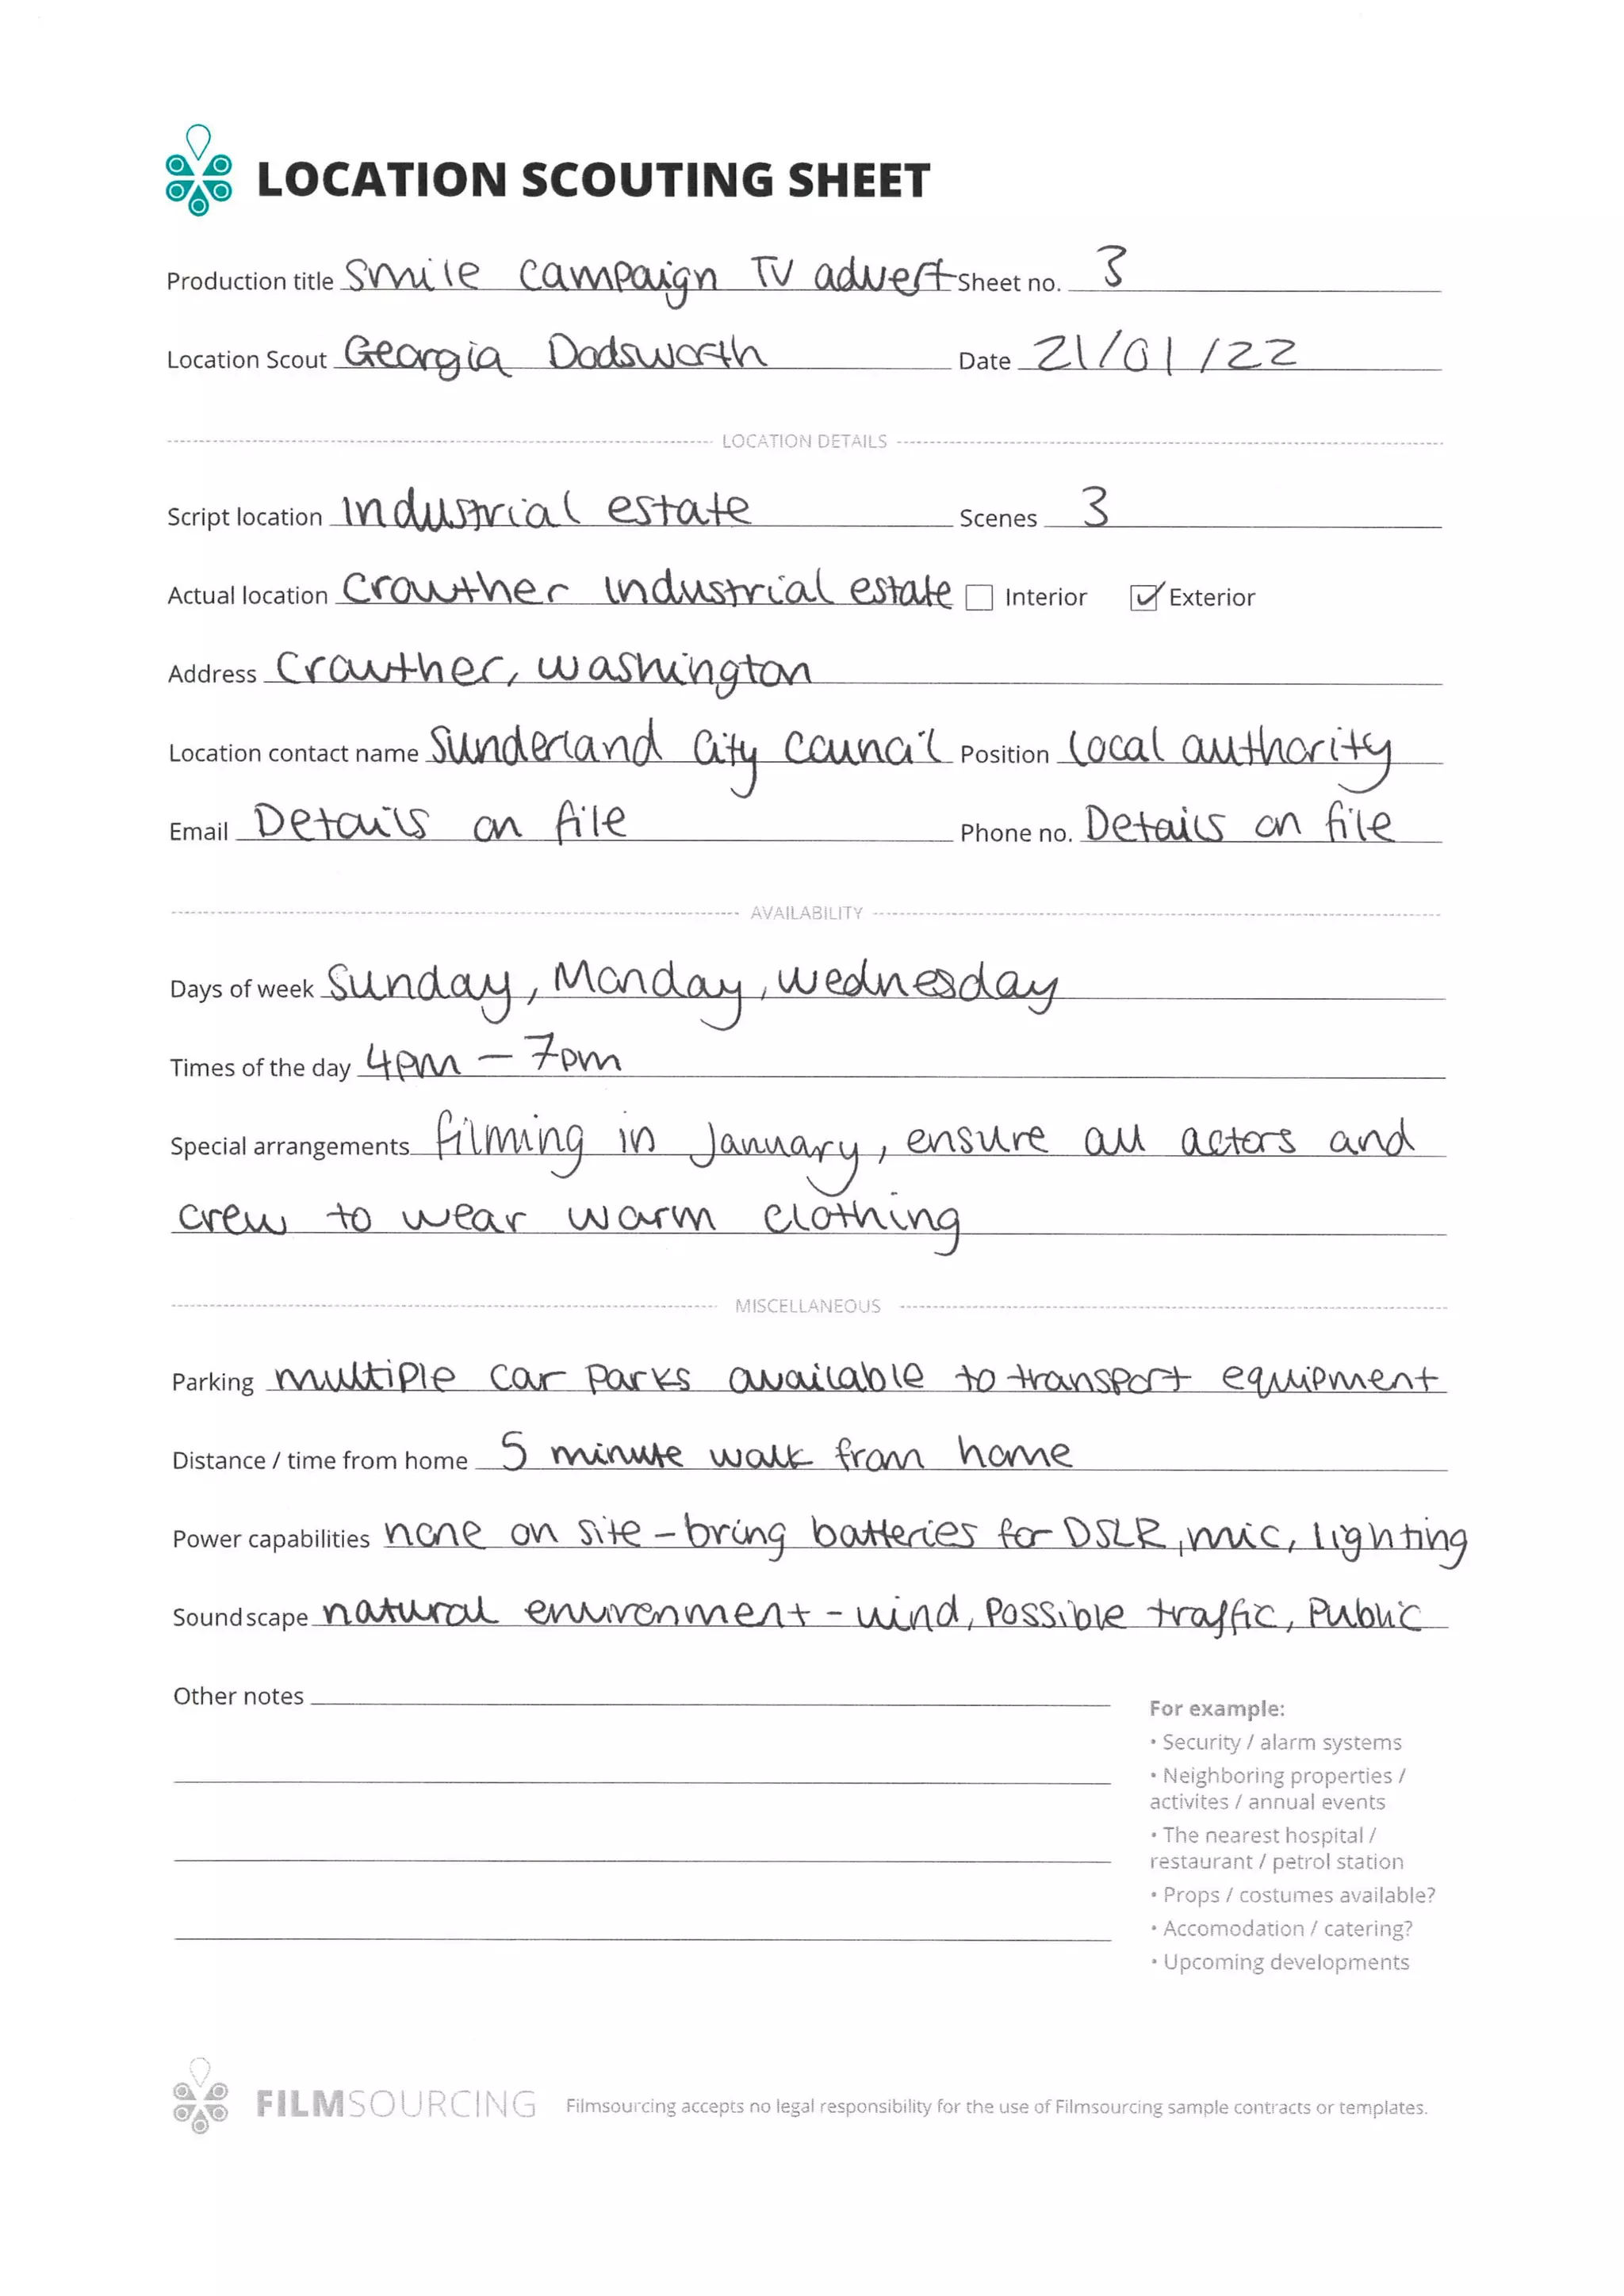 LOCATION SCOUTING SHEET
Production title Smile campaign TV advert Sheet no. 3
Location Scout Georgia Dodsworth Date 21/01/22
LOCATION DETAILS
Script location Industrial estate Scenes 3
Actual location Crowther industrial estate Interior Exterior
Address Crowther, Washington
Location contact name Sunderland City Council Position Local authority
Email Details on file Phone no. Details on file
AVAILABILITY
Days of week Sunday, Monday, Wednesday
Times of the day 4pm - 7pm
Special arrangements filming in January, ensure all actors and
crew to wear warm clothing
MISCELLANEOUS
Parking multiple car parks available to transport equipment
Distance / time from home 5 minute walk from home
Power capabilities none on site - bring batteries for DSLR, mic, lighting
Soundscape natural environment - wind, possible traffic, public
Other notes
For example:
• Security / alarm systems
• Neighboring properties /
activites / annual events
• The nearest hospital /
restaurant / petrol station
• Props / costumes available?
• Accomodation / catering?
• Upcoming developments
FILMSOURCING Filmsourcing accepts no legal responsibility for the use of Filmsourcing sample contracts or templates.